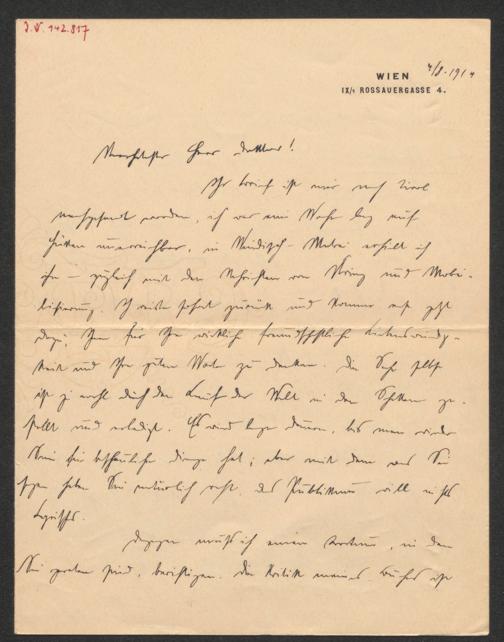 J.N. 142.817
4/8. 1914
WIEN
IX/1 ROSSAUERGASSE 4.
Verehrtester Herr Doktor!
Ihr Brief ist mir nach Tirol
nachgesandt worden, ich war eine Woche lang auf
Hütten unerreichbar, in Windisch-Matrei erhielt ich
ihn – zugleich mit den Nachrichten von Krieg und Mobi-
lisierung. Ich reiste sofort zurück und komme erst jetzt
dazu, Ihnen für Ihre wirklich freundschaftliche Liebenswürdig-
keit und Ihre guten Worte zu danken. Die Sache selbst
ist ja wohl durch den Lauf der Welt in den Schatten ge-
stellt und erledigt. Es wird lange dauern, bis man wieder
Sinn für beschauliche Dinge hat; aber mit dem was Sie
sagen haben Sie natürlich recht, das Publikum will nichts
Dagegen muß ich einen Irrtum, in den
Sie geraten sind, berichtigen. Die Kritik meines Buches ist